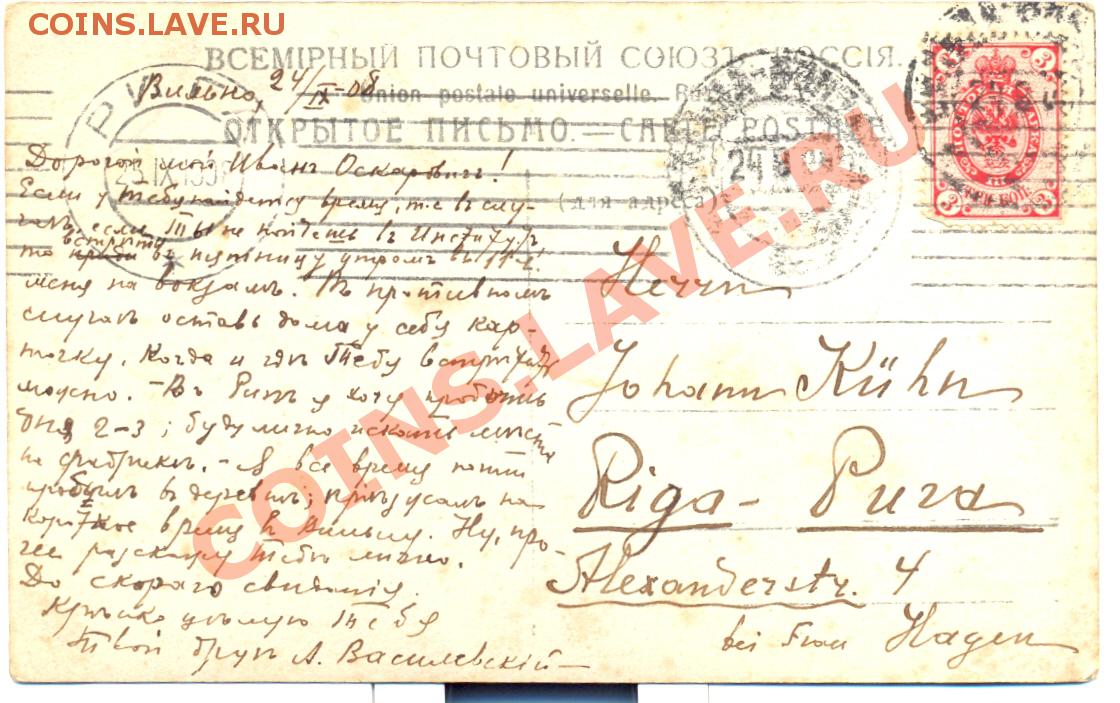 COINS.LAVE.RU
ВСЕМІРНЫЙ ПОЧТОВЫЙ СОЮЗЪ. РОССІЯ.
Вильно, 24/IX-08
Union postale universelle. Russie
ОТКРЫТОЕ ПИСЬМО. — CARTE POSTALE
РИГА
24 9 08
3 3
3 3
(для адреса)
Дорогой мой Иванъ Оскаровичъ!
Если у Тебя найдется время, то в слу-
чаѣ, если Ты не пойдешь въ Институтъ
встрѣть
то въ пятницу утромъ въ 11 ч.
меня на вокзалѣ. Въ противномъ
случаѣ оставь дома у себя кар-
точку, когда и гдѣ Тебя встрѣтить
можно. – Въ Ригѣ я хочу пробыть
дня 2-3; буду лично искать мѣста
на фабрикѣ. – Я все время почти
пробылъ въ деревнѣ; пріѣхалъ на
короткое время въ Вильну. Ну, про-
чее разскажу Тебѣ лично.
До скораго свиданія.
Крѣпко цѣлую Тебя
Твой другъ А. Василевскій
Herrn
Johann Kühn
Riga - Pura
Alexanderstr. 4
bei Frau Hagen
COINS.LAVE.RU